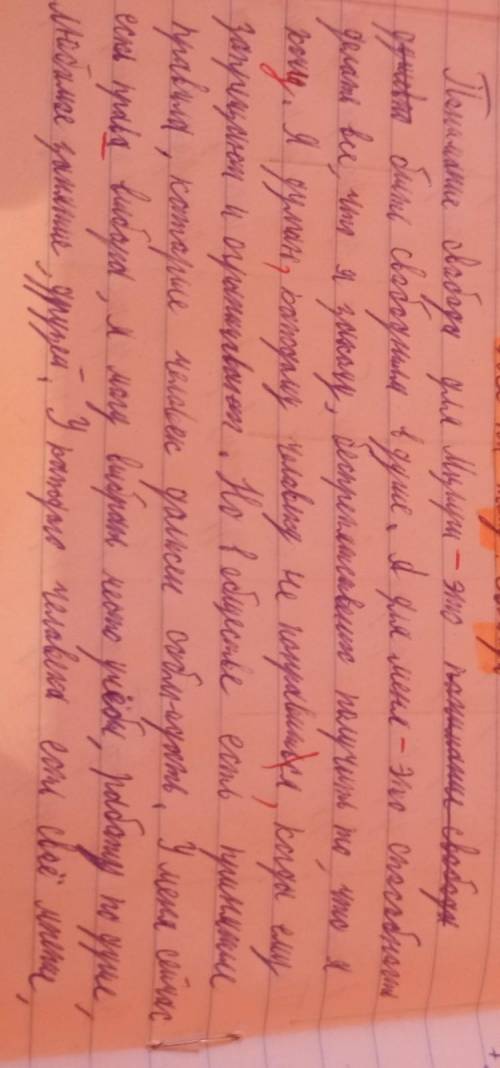 Понимание свободы для Мцыри – это понимание свободы
быть свободным в душе. А для меня – это способность
делать все, что я захочу, беспрепятственно получить то, что я
хочу. Я думаю, каждому человеку не понравиться, когда ему
запрещают и ограничивают. Но в обществе есть принятые
правила, которые человек должен соблюдать. У меня сейчас
есть право выбора, я могу выбрать место учёбы, работу по душе,
любимое занятие, друзей. У каждого человека есть своё мнение,